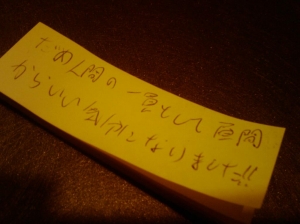 だめ人間の一員として昼間
からいい気分になりました!!